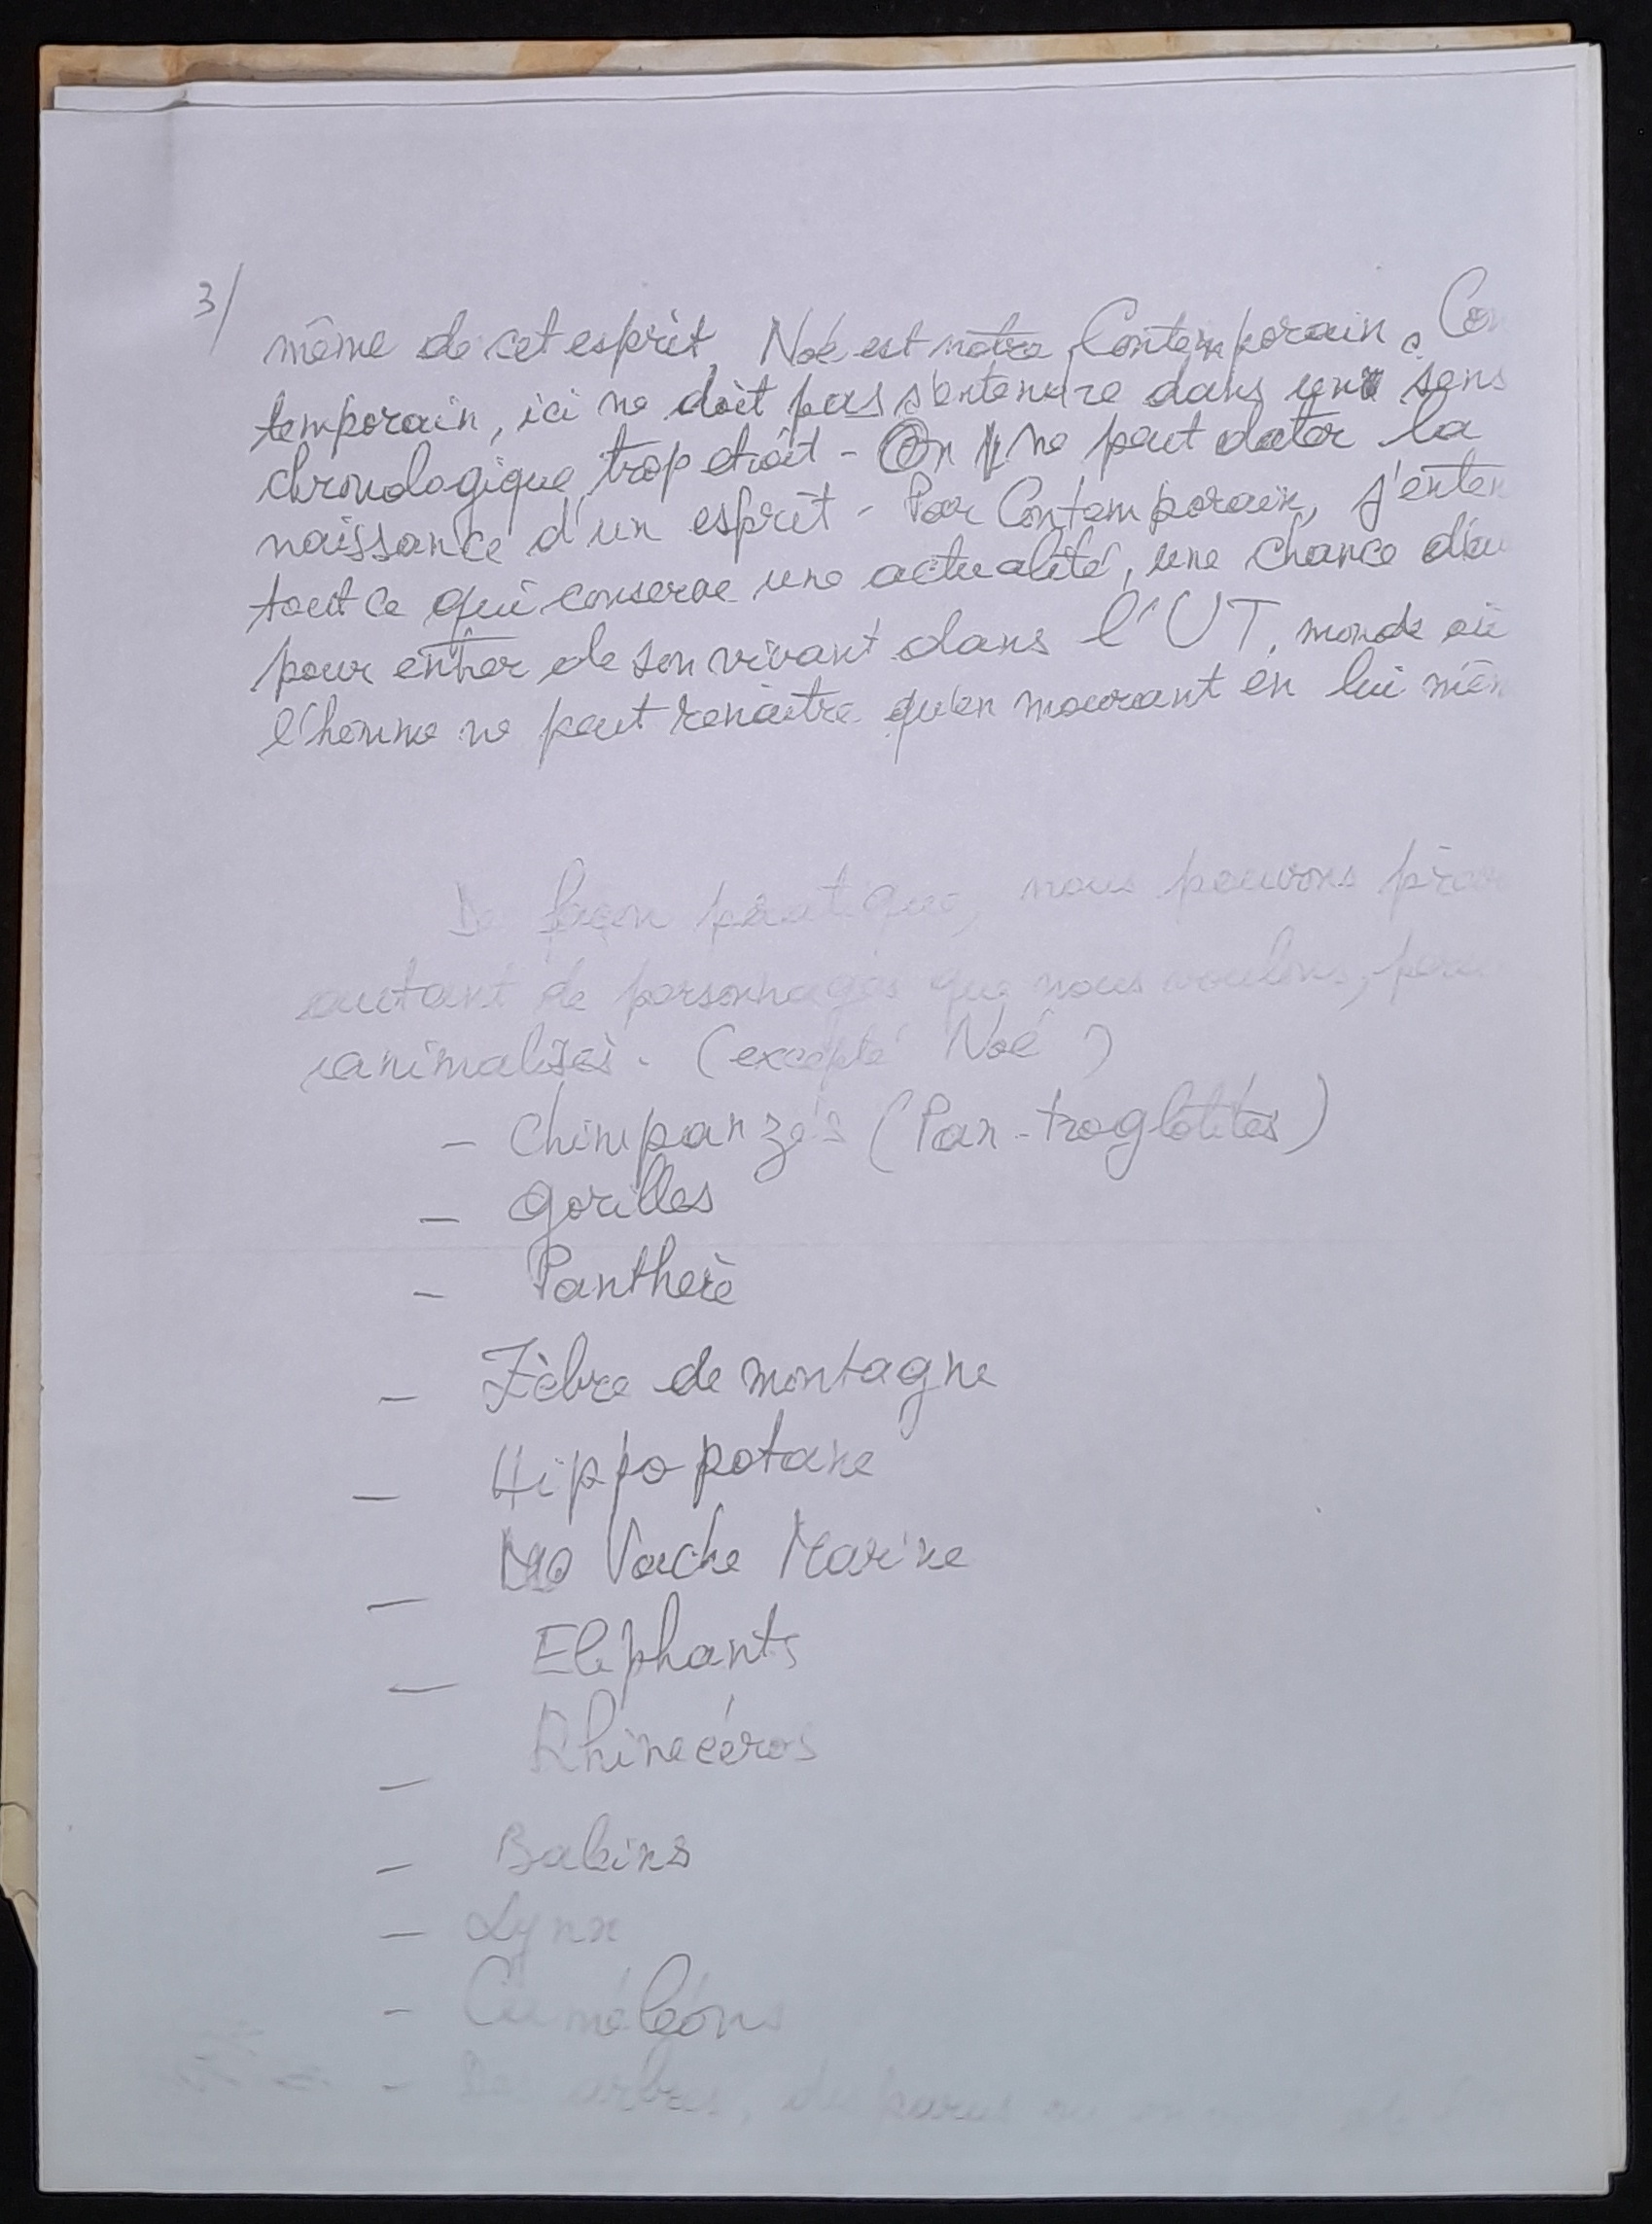 3/
même de cet esprit, Noé est notre Contemporain. Con
temporain, ici ne doit pas s'entendre dans un sens
chronologique trop etroit - On ne peut dater la
naissance d'un esprit - Par Contemporain, j'enten
tout ce qui conserve une actualité, une chance d'au
pour entrer de son vivant dans l'UT, monde où
l'homme ne peut renaitre qu'en mourant en lui mêm
De façon pratique, nous pouvons
autant de personnages que nous voulons,
animalisés. (excepté Noé)
- Chimpanzés (Pan-troglotites)
- gorilles
- Panthère
- Zèbre de montagne
- Hippopotame
- Vache Marine
- Elephants
- Rhinocéros
- Baleins
- Lynx
- Caméléons
- Des arbres,